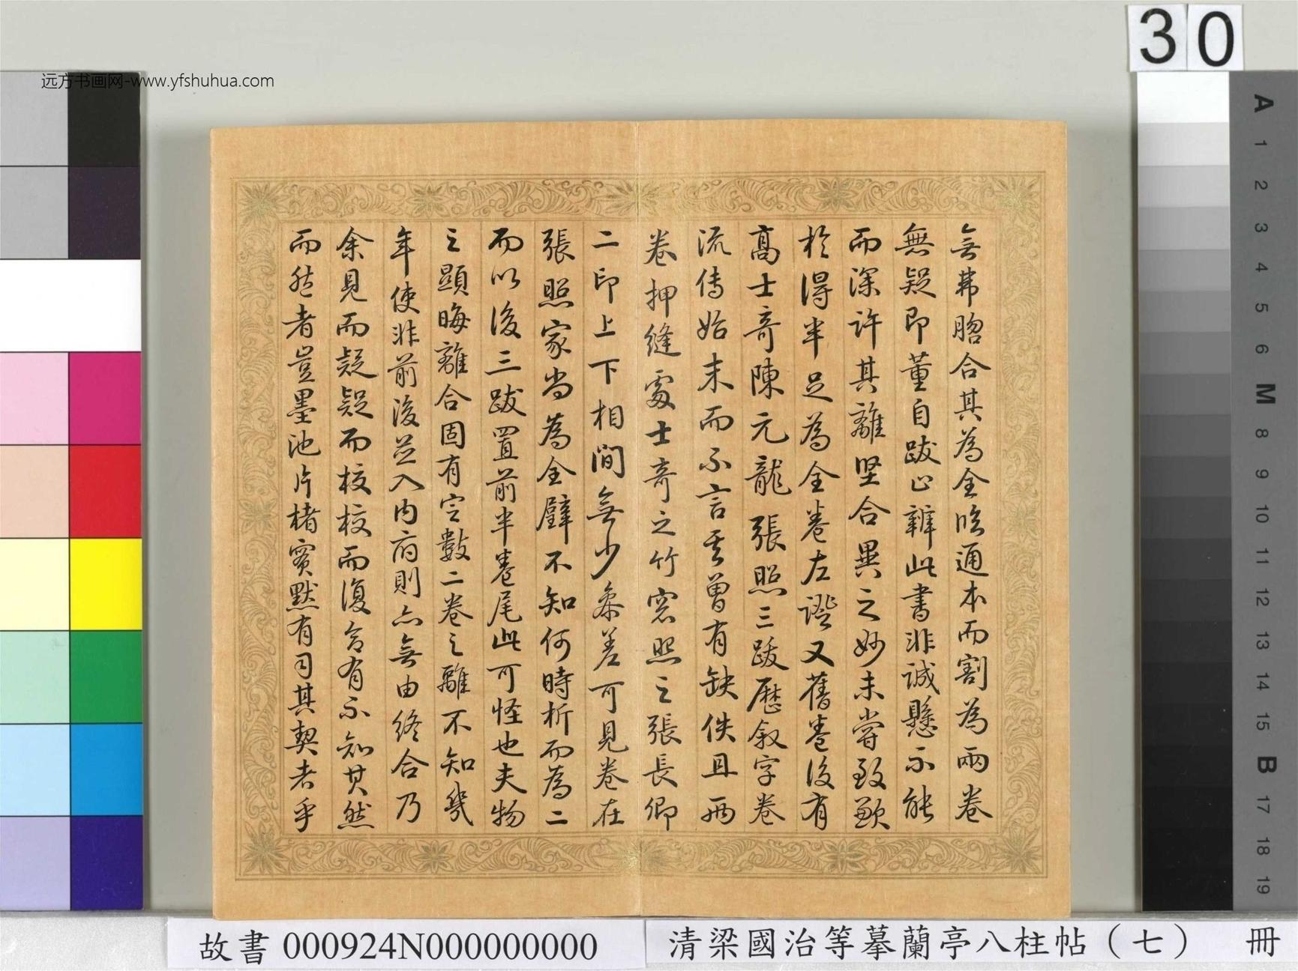 30
远方书画网-www.yfshuhua.com
無弗脗合其為全臨通本而割為兩卷
無疑即董自跋云辨此書非誠懸不能
而深許其離堅合異之妙未嘗致歎
於得半足為全卷左證又舊卷後有
高士奇陳元龍張照三跋歷叙字卷
流傳始末而不言其曾有缺佚且兩
卷押縫處士奇之竹窓照之張長卿
二印上下相間無少參差可見卷在
張照家尚為全璧不知何時析而為二
而以後三跋置前半卷尾此可怪也夫物
之顯晦離合固有定數二卷之離不知幾
年使非前後並入内府則亦無由終合乃
余見而疑疑而校校而復合有不知其然
而然者豈墨池片楮實默有司其契者乎
A
1
2
3
4
5
6
M
8
9
10
11
12
13
14
15
B
17
18
19
故書 000924N000000000
清梁國治等摹蘭亭八柱帖（七） 冊